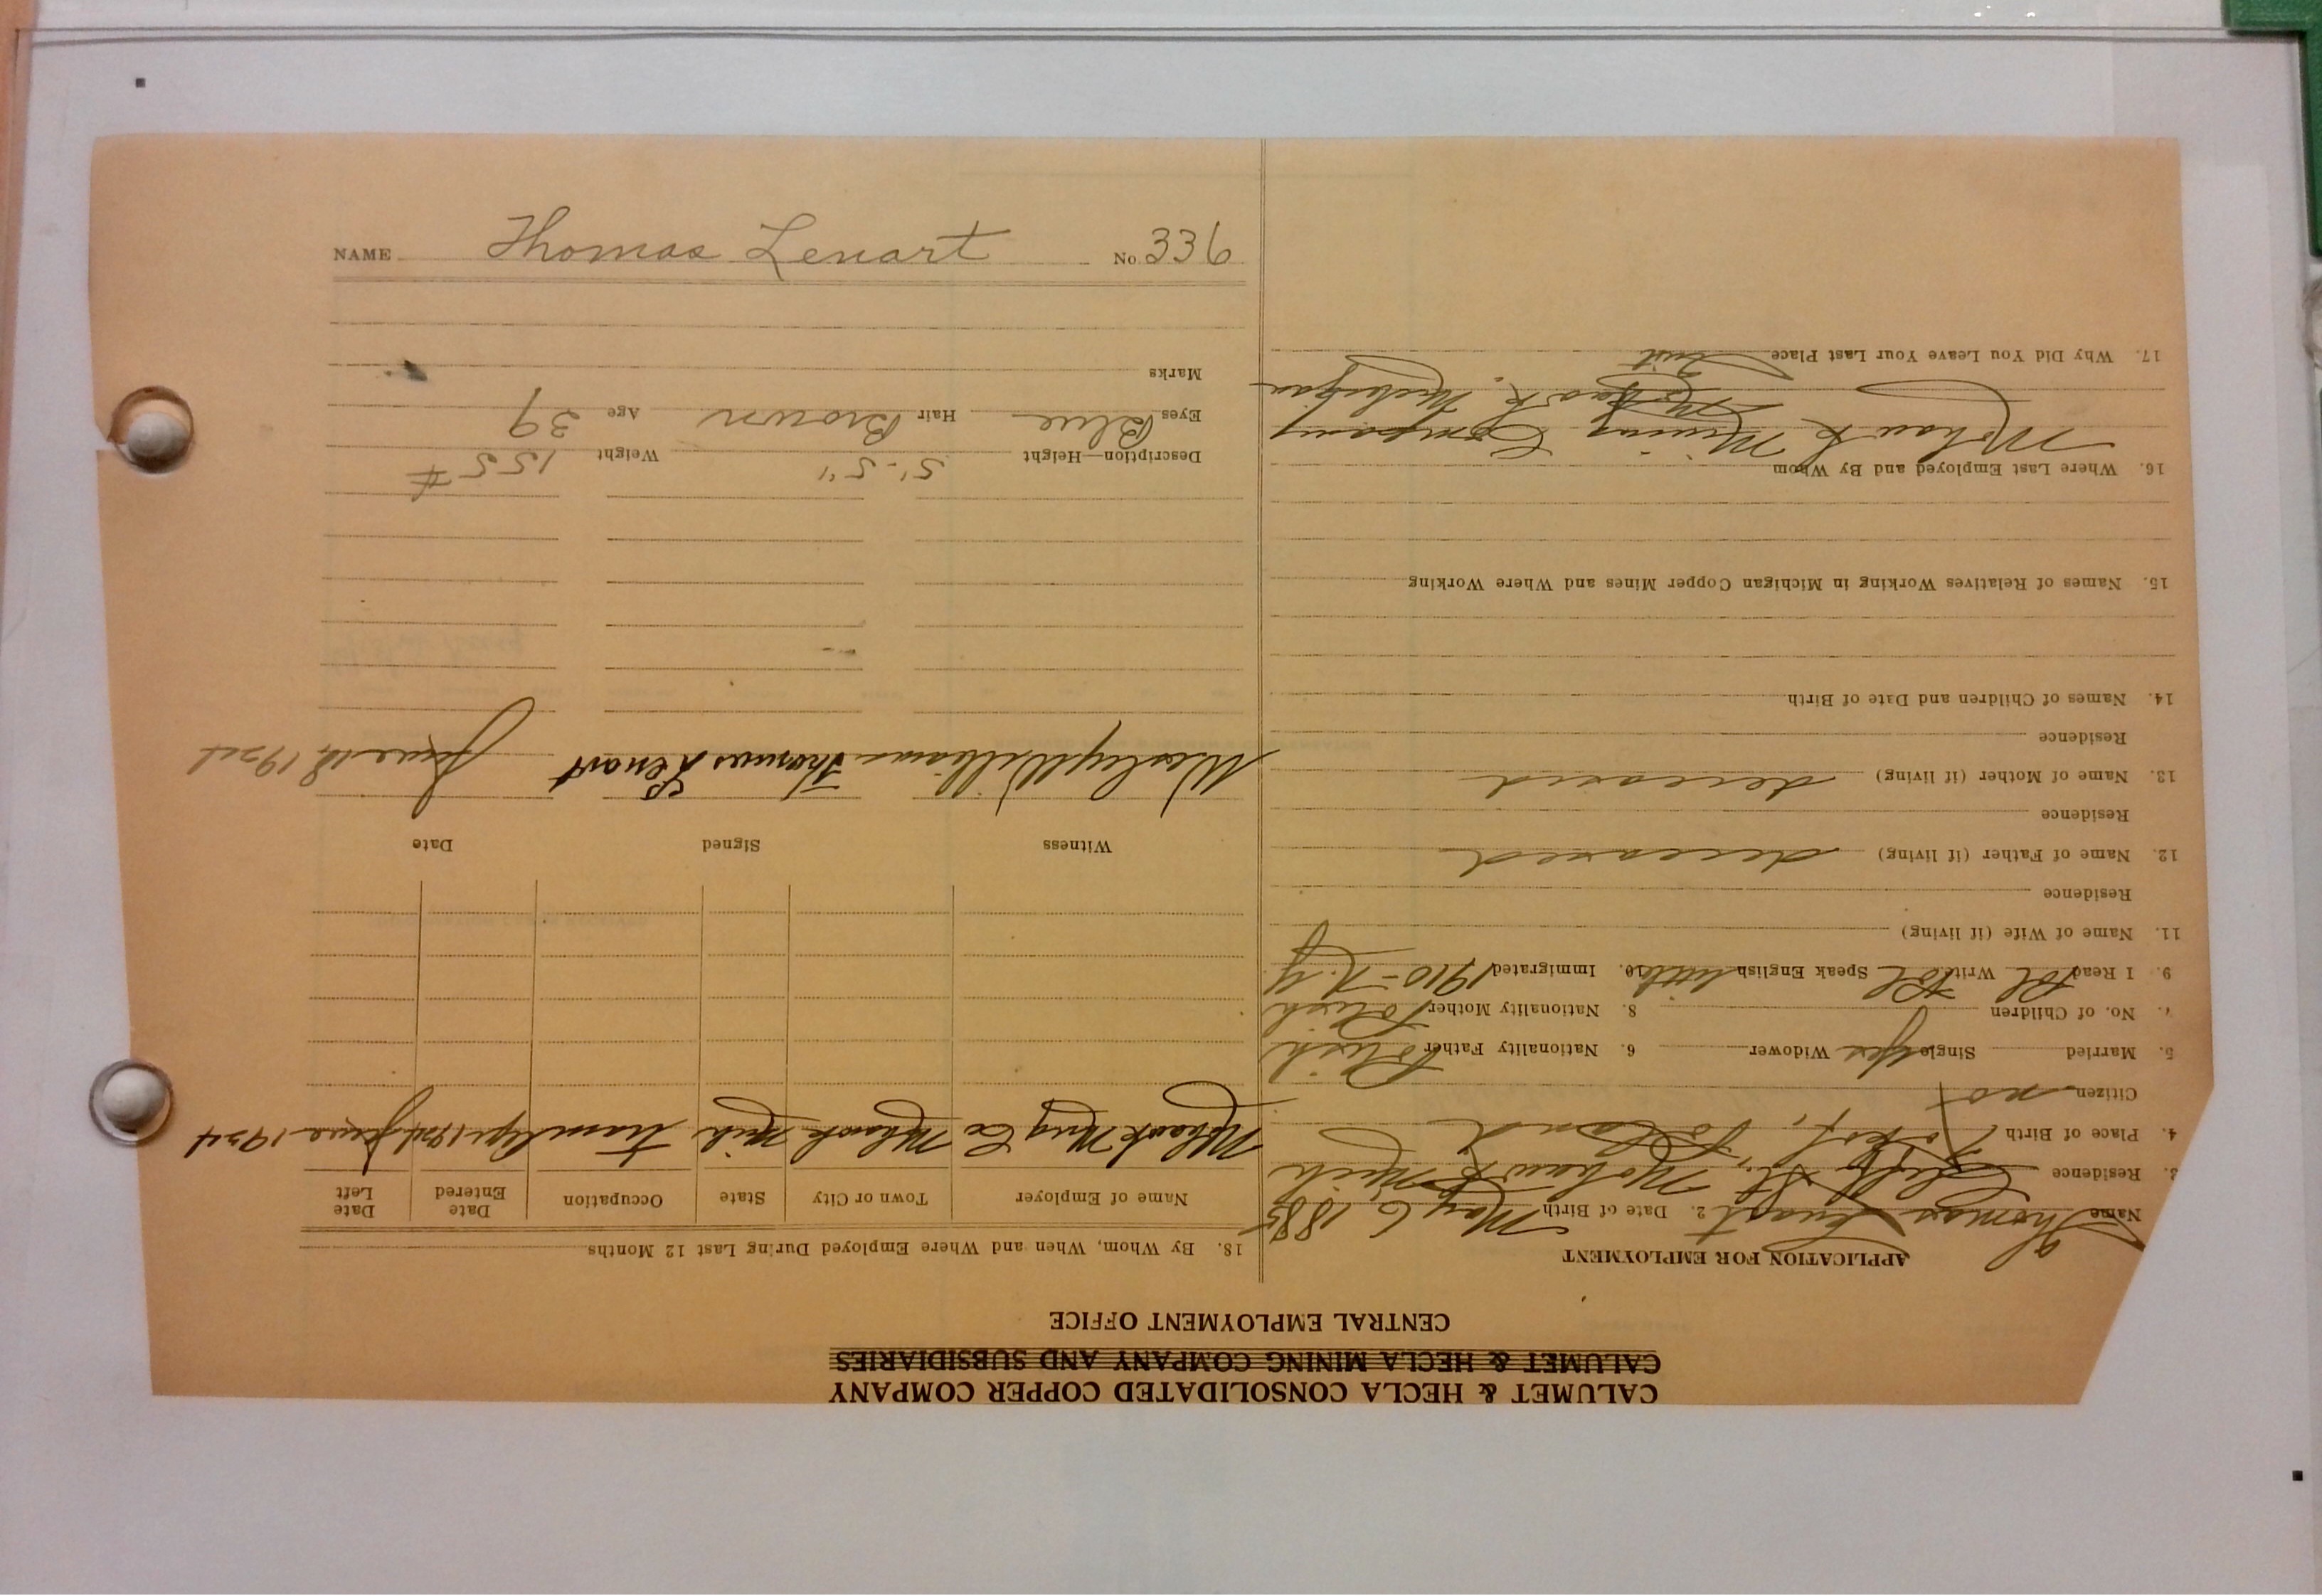 NAME Thomas Lenart No. 336
CALUMET & HECLA CONSOLIDATED COPPER COMPANY
CALUMET & HECLA MINING COMPANY AND SUBSIDIARIES
CENTRAL EMPLOYMENT OFFICE
APPLICATION FOR EMPLOYMENT
Name Thomas Lenart 2. Date of Birth May 6 1885
3. Residence Cliff St., Mohawk Mich
4. Place of Birth Poland
Citizen not
5. Married Single yes Widower 6. Nationality Father Polish
7. No. of Children 8. Nationality Mother Polish
9. I Read Pol Write Pol Speak English little 10. Immigrated 1910 - N.Y
11. Name of Wife (if living)
Residence
12. Name of Father (if living) deceased
Residence
13. Name of Mother (if living) deceased
Residence
14. Names of Children and Date of Birth
15. Names of Relatives Working in Michigan Copper Mines and Where Working
16. Where Last Employed and By Whom
Mohawk Mining Company
Mohawk, Michigan
17. Why Did You Leave Your Last Place Quit
18. By Whom, When and Where Employed During Last 12 Months
Name of Employer Town or City State Occupation Date Entered Date Left
Mohawk Mining Co Mohawk Mich Tram 1924 June 1924
Witness Signed Date
Wesley Williams Thomas Lenart June 18, 1924
Description—Height 5'-5" Weight 155 #
Eyes Blue Hair Brown Age 39
Marks